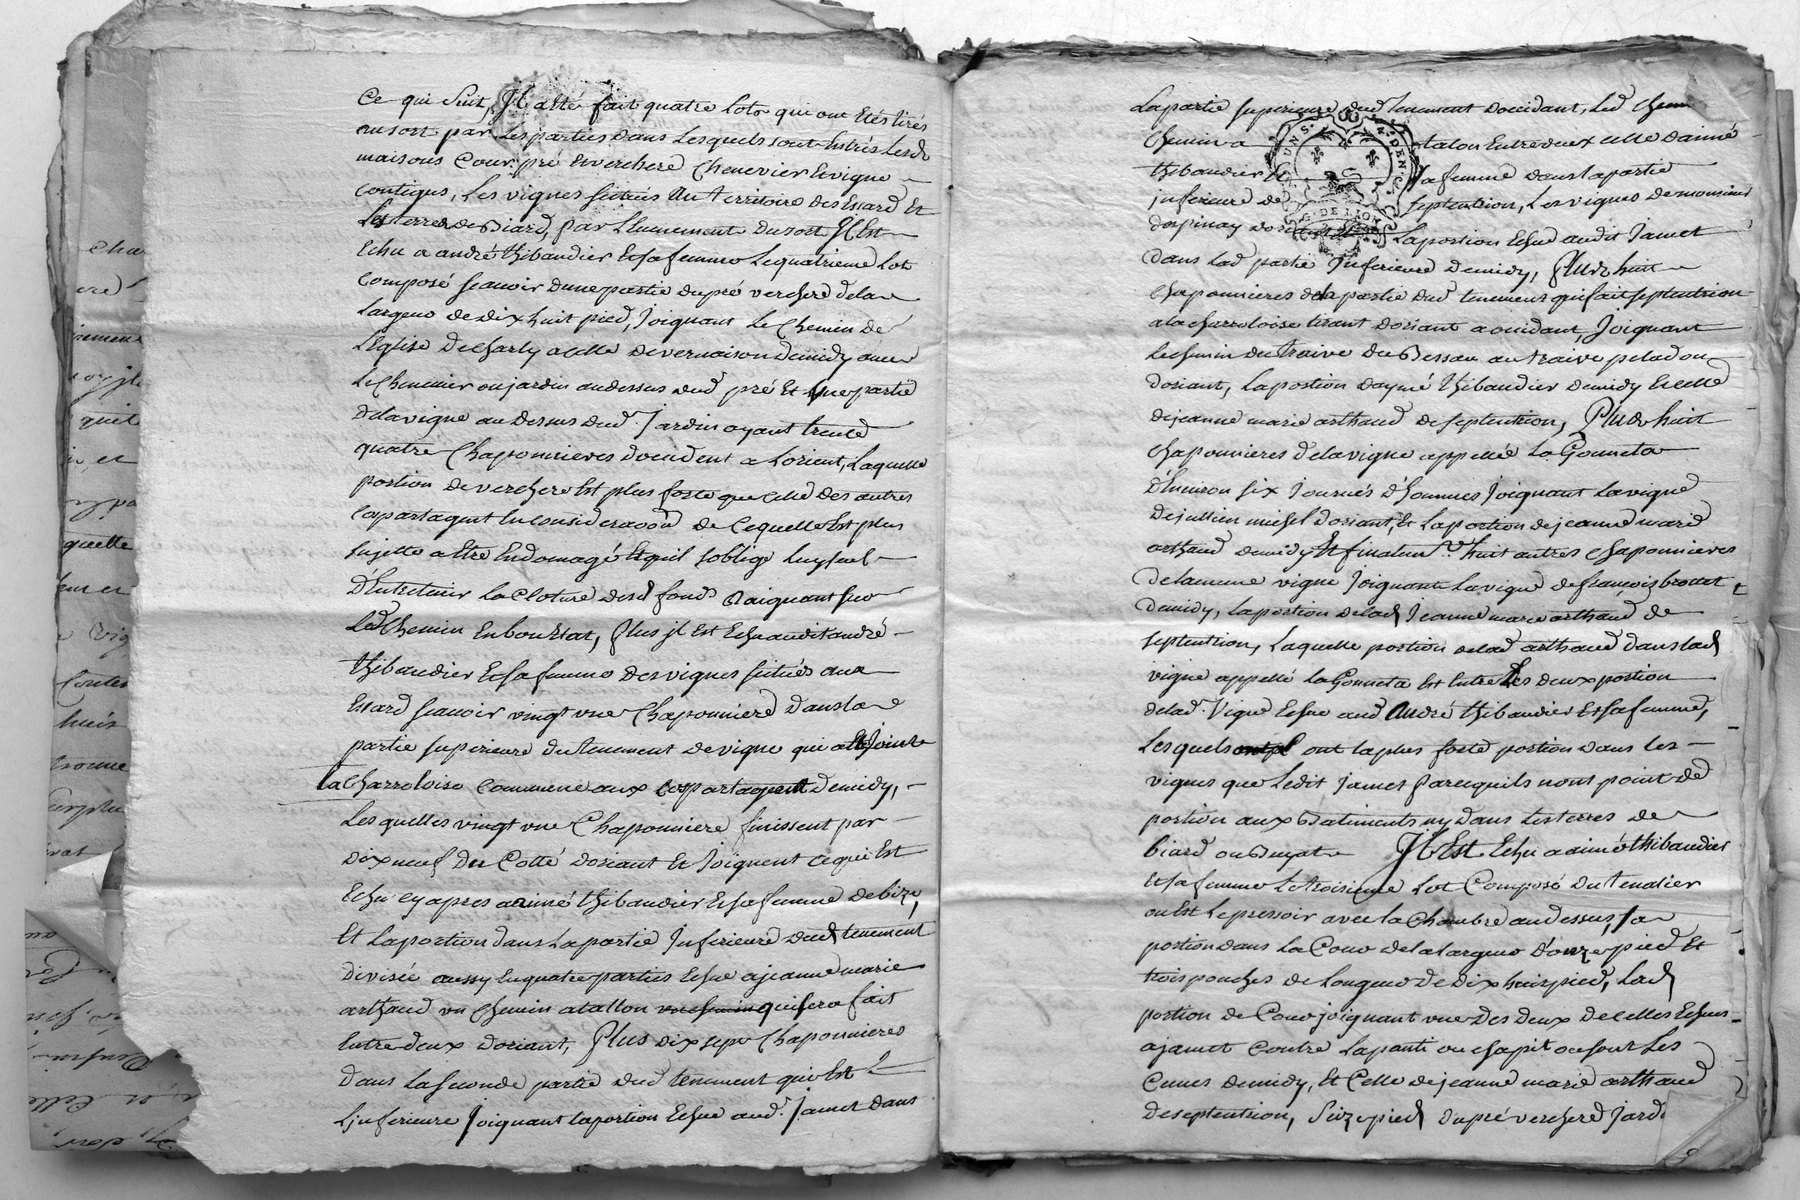 Ce qui suit, Il a esté fait quatre lots qui ont étés tirés
au sort par les parties dans lesquels sont entrés lesd
maisons Cour pré Everchere Chenevier Evigne
contigus, les vignes scitués au territoire des Essard Et
les terres de Biard, par l'evenement du sort Il Est
Echu a andré thibaudier Et sa femme le quatrieme lot
composé scauoir d'une partie du pré verchere de la
largeur de dix huit pied, Joignant le Chemin de
l'Eglise de Charly a celle de vernaison de midy avec
le Chenevier ou jardin au dessus dud pré Et Une partie
de la vigne au dessus dud. Jardin ayant trente
quatre Chaponnieres d'occident a l'orient, laquelle
portion de verchere Est plus forte que celle des autres
copartageant En consideraõn de ce quelle Est plus
sujette a Etre Endomagé Et quil s'oblige luy seul
D'Entretenir la cloture desd fonds Raignant sur
led Chemin En bouziat, Plus il Est Echu audit andré
thibaudier Et sa femme des vignes scitués aux
Essard scauoir vingt une Chaponniere dans la
partie superieure du tenement de vigne qui a Eté jointe
la charroloise commune aux copartageant de midy,
Lesquelles vingt une Chaponniere finissent par
dix neuf du cotté d'oriant Et Joignent ce qui Est
Echu cy apres a aimé thibaudier Et sa femme de bize,
Et la portion dans la partie Inferieure dud tenement
divisée aussy En quatre parties Echue a jeanne marie
arthaud un chemin a tallon qui sera fait
Entre deux d'oriant, Plus dix sept Chaponnieres
dans la seconde partie dud tenement qui Est
L'inferieure Joignant la portion Echue aud. Jamet dans
La partie superieure dud tenement d'occidant, led Chem
Chemin a talon Entre deux celle d'aimé
thibaudier Et sa femme dans la partie
inferieure de septentrion, les vignes de monsieur
dorpinay la portion Echue audit Jamet
dans lad partie Inferieure de midy, Plus huit
Chaponnieres de la partie dud tenement qui fait septentrion
a la charroloise tirant d'oriant a occidant, Joignant
le chemin du traive du Bessau au traive peladou
d'oriant, la portion d'aymé thibaudier de midy Et celle
de jeanne marie arthaud de septentrion, Plus huit
Chaponnieres de la vigne appellée la Gonneta
d'Environ six Journés d'hommes Joignant la vigne
de jullien michel d'oriant, Et la portion de jeanne marie
arthaud de midy Et finalem.t huit autres chaponnieres
de la meme vigne Joignant la vigne de françois brottet
de midy, la portion de lad Jeanne marie arthaud de
septentrion, Laquelle portion de lad arthaud dans lad
vigne appellé la Gonneta Est Entre les deux portion
de lad. Vigne Echue aud André thibaudier Et sa femme,
Lesquels ont la plus forte portion dans les
vignes que ledit Jamet Parcequils n'ont point de
portion aux Batiments ny dans les terres de
biard Il Est Echu a aimé thibaudier
Et sa femme le troisieme lot Composé du tenalier
ou Est le pressoir avec la Chambre au dessus, sa
portion dans la Cour de la largeur d'onze pied Et
trois pouches de longeur de dix huit pied, lad
portion de Cour joignant une des deux de celles Echues
a jamet contre la panti ou chapit ou sont les
Cuves de midy, Et Celle de jeanne marie arthaud
de septentrion, Seize pied du pré verchere Jard